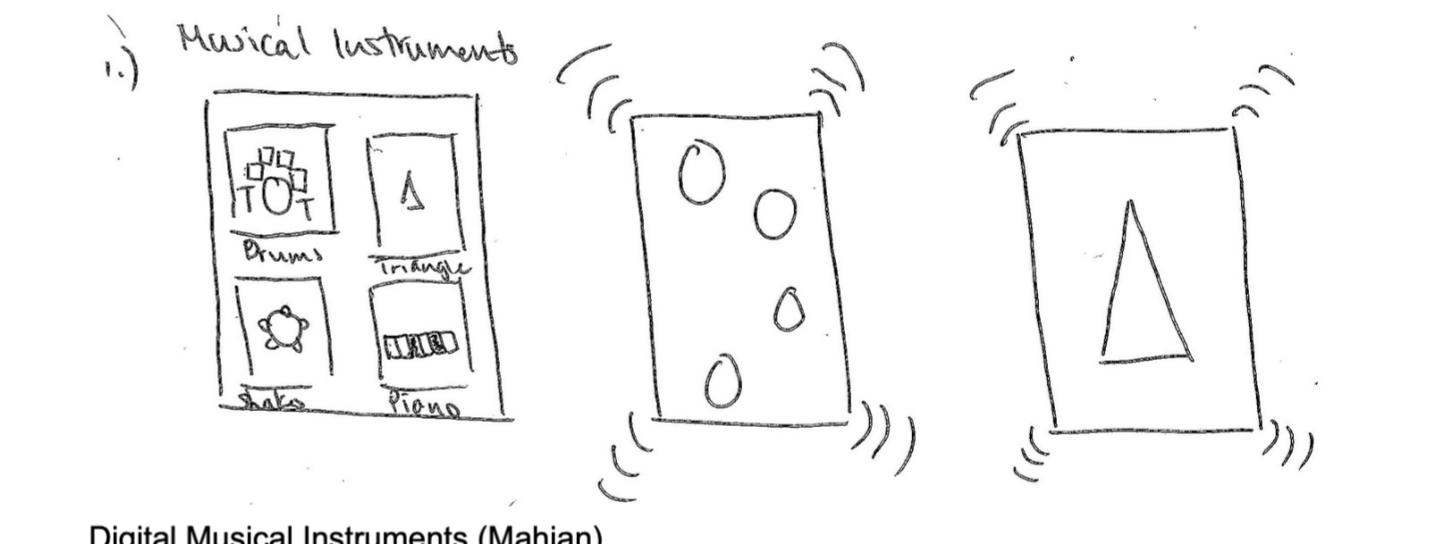 1.) Musical Instruments
Drums
Triangle
Piano
Digital Musical Instruments (Mahian)